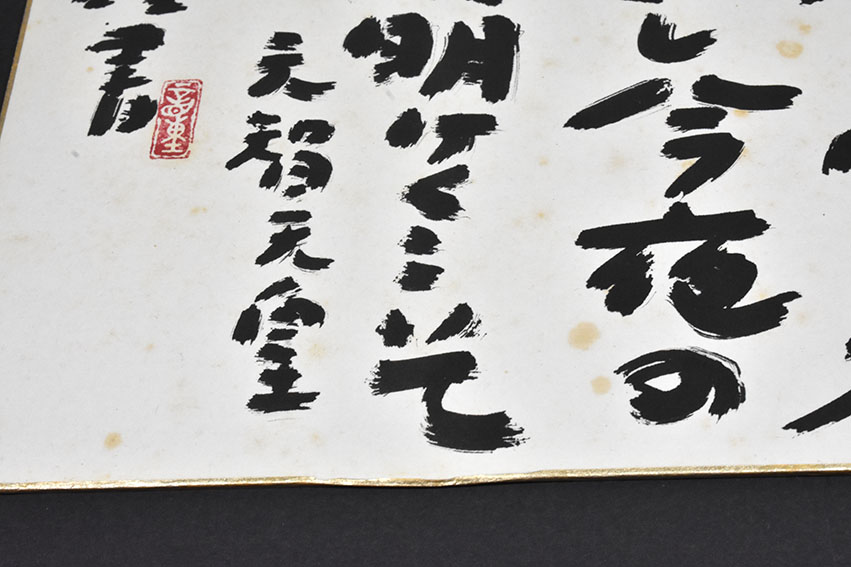 し今夜の
明けくこそ
天智天皇
書